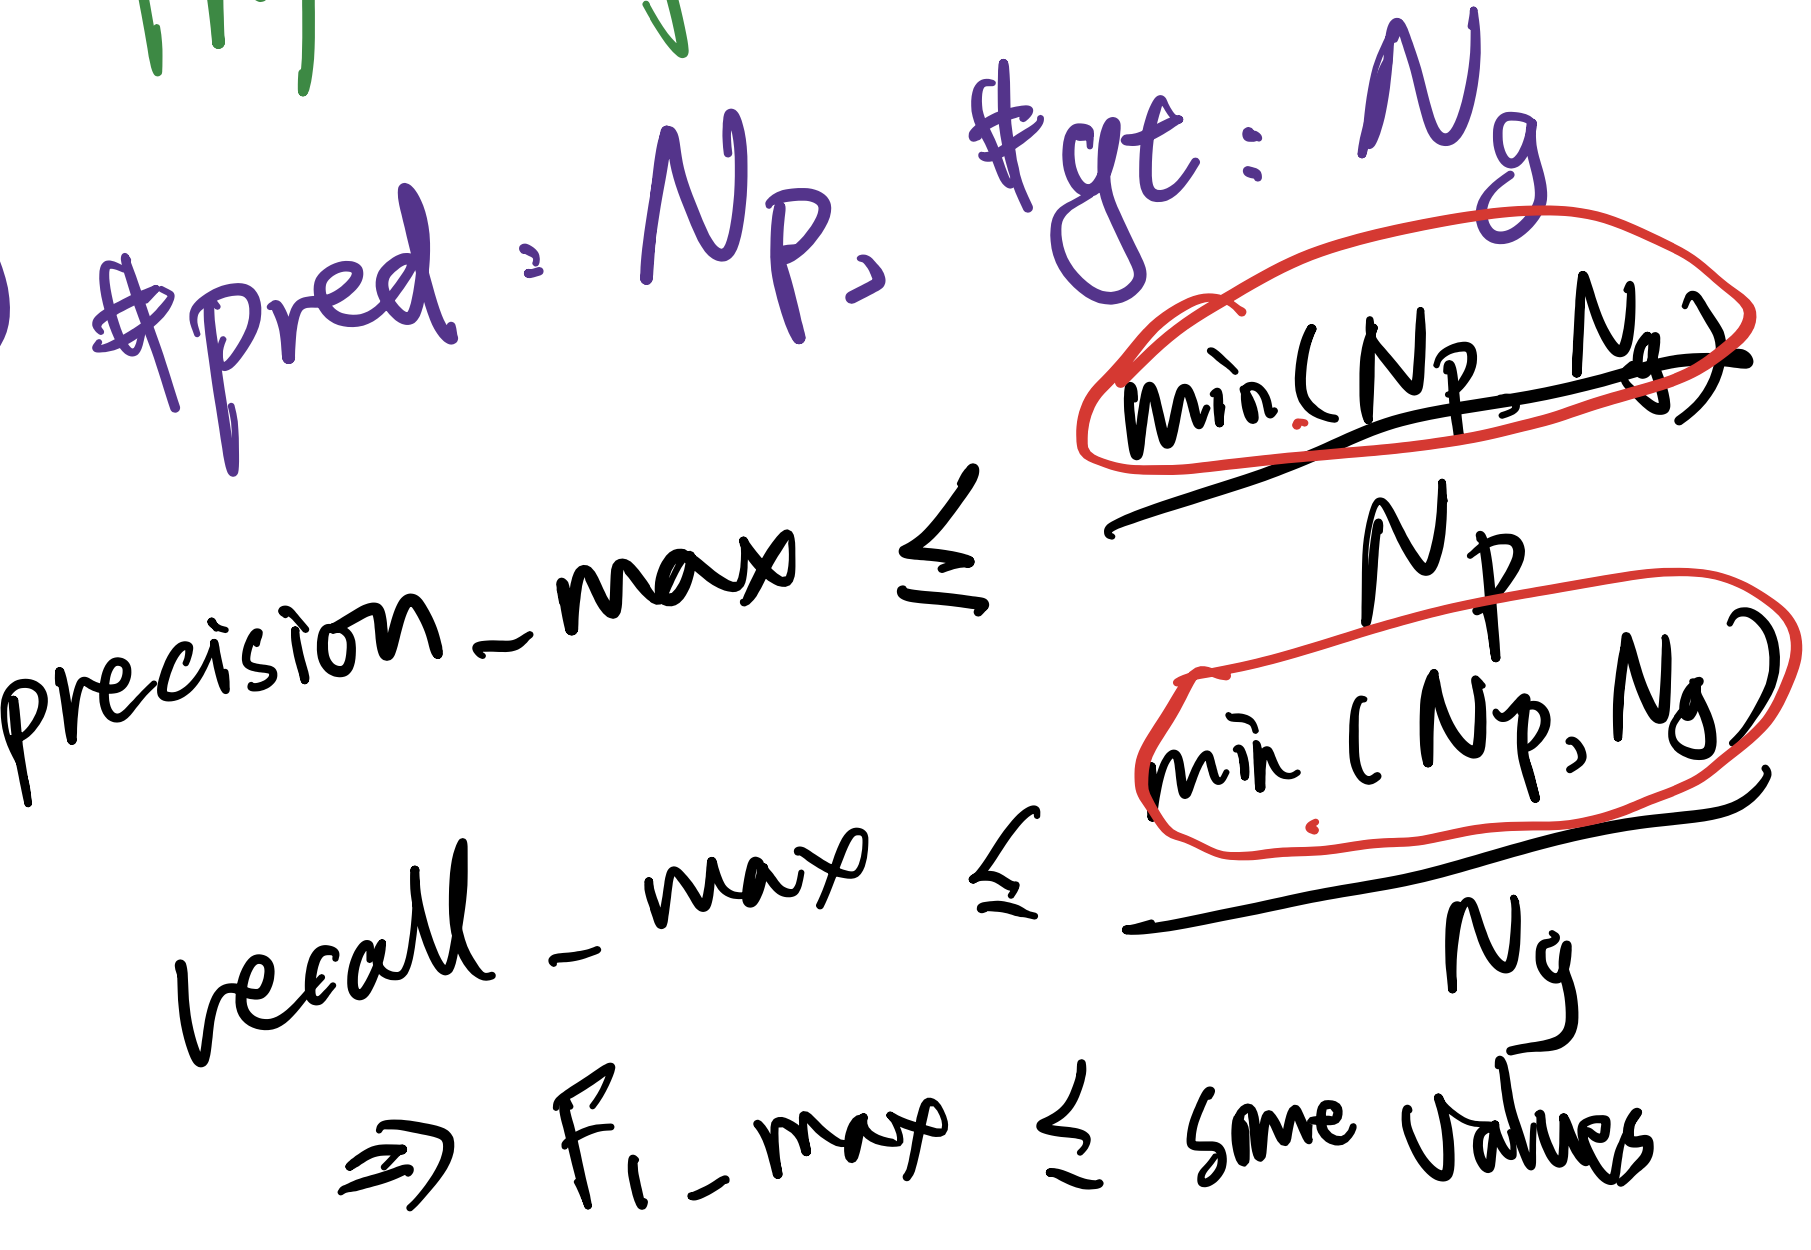 #pred : Np, #gt : Ng
precision_max ≤ min(Np, Ng) / Np
recall_max ≤ min(Np, Ng) / Ng
⇒ F1_max ≤ some values